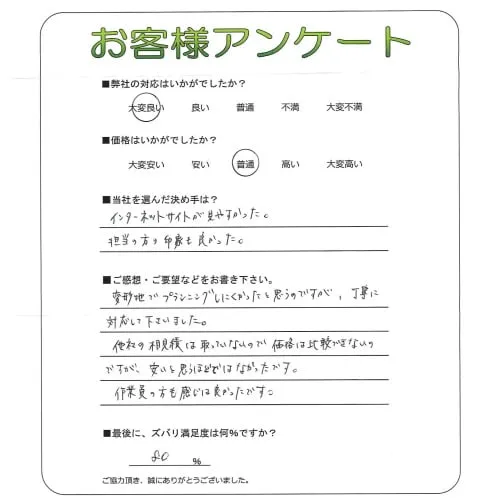 お客様アンケート
■弊社の対応はいかがでしたか？
大変良い 良い 普通 不満 大変不満
■価格はいかがでしたか？
大変安い 安い 普通 高い 大変高い
■当社を選んだ決め手は？
インターネットサイトが見やすかった。
担当の方の印象も良かった。
■ご感想・ご要望などをお書き下さい。
変形地でプランニングしにくかったと思うのですが、丁寧に
対応して下さいました。
他社の相見積は取っていないので価格は比較できないの
ですが、安いと思うほどではなかったです。
作業員の方も感じは良かったです。
■最後に、ズバリ満足度は何%ですか？
80 %
ご協力頂き、誠にありがとうございました。